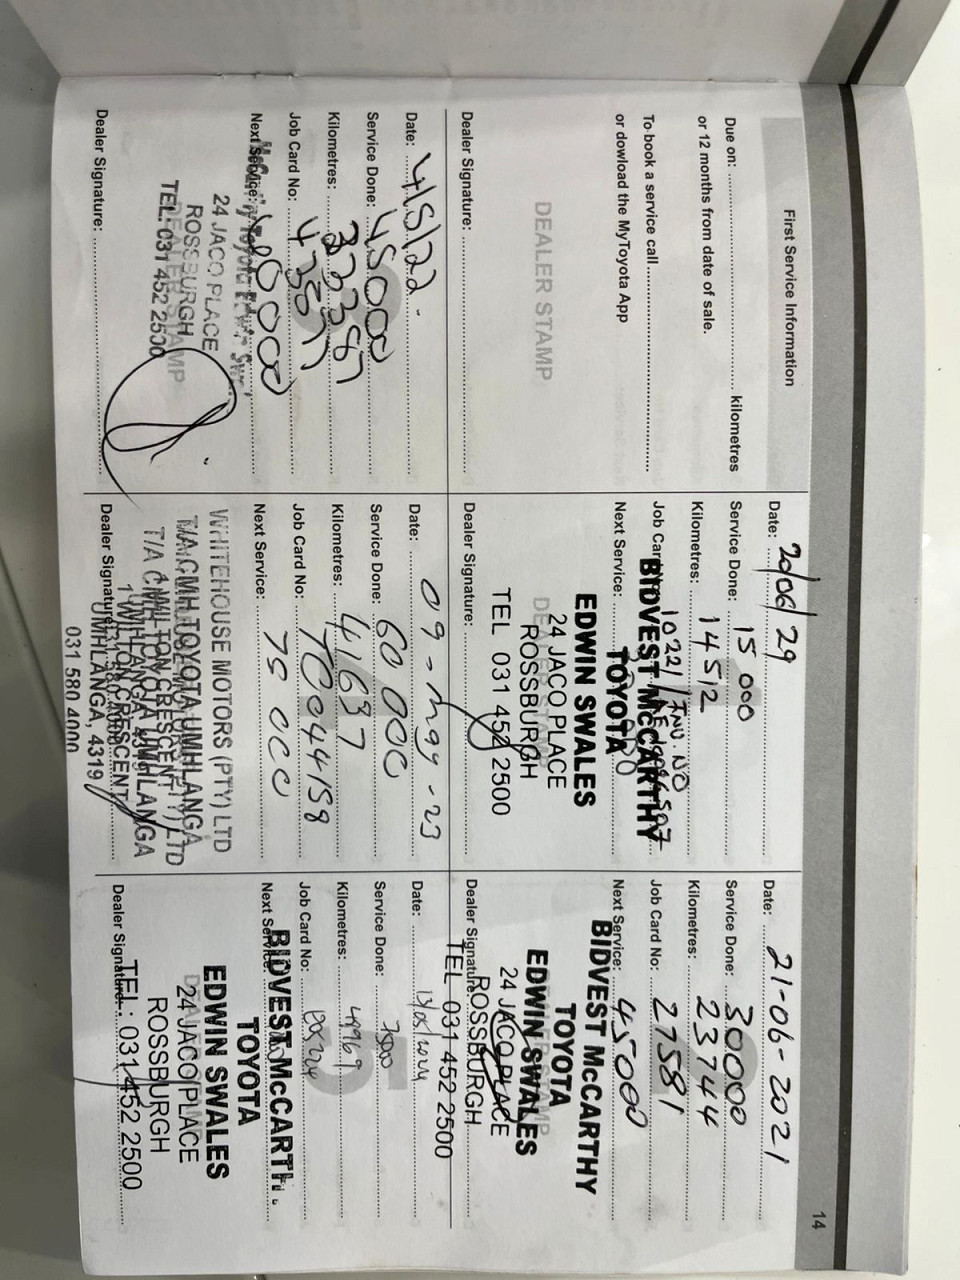 14
First Service Information
Due on: kilometres
or 12 months from date of sale.
To book a service call
or dowload the MyToyota App
DEALER STAMP
Dealer Signature:
Date: 20/06/29
Service Done: 15 000
Kilometres: 14512
Job Card 1022/ INV. NO
Next Service:
BIDVEST McCARTHY
TOYOTA
EDWIN SWALES
24 JACO PLACE
ROSSBURGH
TEL 031 452 2500
Dealer Signature:
Date: 21-06-2021
Service Done: 30000
Kilometres: 23744
Job Card No: 27581
Next Service: 45000
BIDVEST McCARTHY
TOYOTA
EDWIN SWALES
24 JACO PLACE
ROSSBURGH
TEL 031 452 2500
Dealer Signature:
Date: 4/5/22
Service Done: 45000
Kilometres: 32387
Job Card No: 42877
Next Service:
24 JACO PLACE
ROSSBURGH
DEALER STAMP
TEL: 031 452 2500
Dealer Signature:
Date: 09-May-23
Service Done: 60 000
Kilometres: 41637
Job Card No:
Next Service: 75 000
WHITEHOUSE MOTORS (PTY) LTD
T/A CMH TOYOTA UMHLANGA
1 WILTON CRESCENT
UMHLANGA, 4319
031 580 4000
Dealer Signature:
Date: 13/05/2024
Service Done:
Kilometres: 49969
Job Card No:
Next Service:
BIDVEST McCARTH
TOYOTA
EDWIN SWALES
24 JACO PLACE
ROSSBURGH
TEL: 031 452 2500
Dealer Signature: